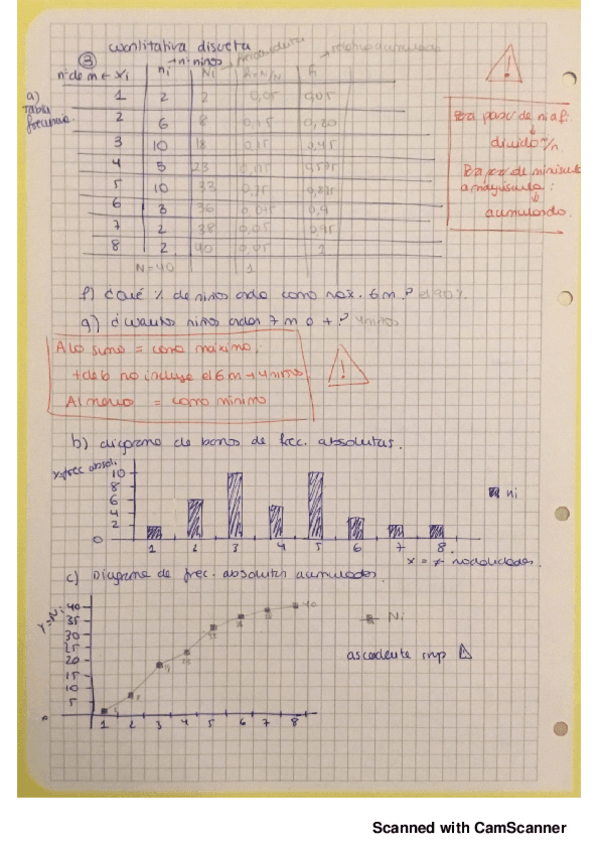 cuantitativa discreta
③ → nº niños
nº de m ← xi ni Ni
a) Tabla frecuencias
1 2 2 0,05 0,05
2 6 8 0,15 0,20
3 10 18 0,45
4 5 23 0,575
5 10 33
6 3 36 0,9
7 2 38 0,05 0,95
8 2 40 0,05 1
N=40 1
Para pasar de ni a f:
divido
Para de minúscula
a mayúscula:
acumulando.
f) ¿Qué % de niños como máx. 6 m.? el 90%
g) ¿Cuántos niños 7 m o +? 4 niños
A lo sumo = como máximo.
+ de 6 no incluye el 6 m → 4 niños
Al menos = como mínimo
!
b) diagrama de barras de frec. absolutas.
frec absol.
10
8
6
4
2
0
1 2 3 4 5 6 7 8
ni
x = modalidades.
c) Diagrama de frec. absolutas acumuladas
y = Ni
40
35
30
25
20
15
10
5
1 2 3 4 5 6 7 8
40
Ni
ascendente imp
Scanned with CamScanner